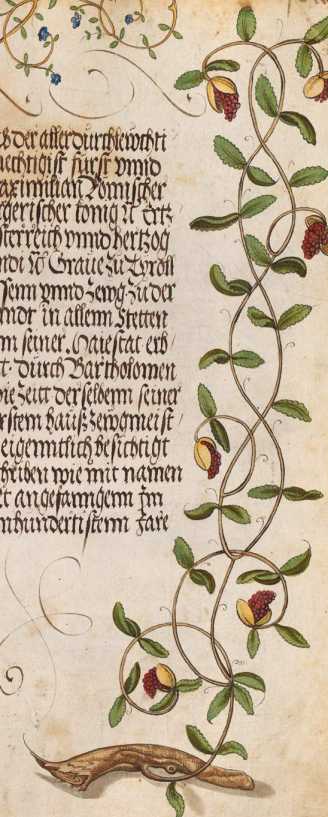 ch der allerdurchlewchti
mechtigist furst vnnd
aximilian Romischer
gerischer konig rc Ertz
sterreich vnnd hertzog
ndi rc Graue zu Tyroll
senn vnnd zewg zu der
andt in allenn Stetten
n seiner Maiestat erb
t durch Bartholomen
die Zeitt derselbenn seiner
rstem hawß zewgmeist
eigenntlich besichtigt
chriben wie mit namen
er angefanngenn Im
nhundertistenn Jare